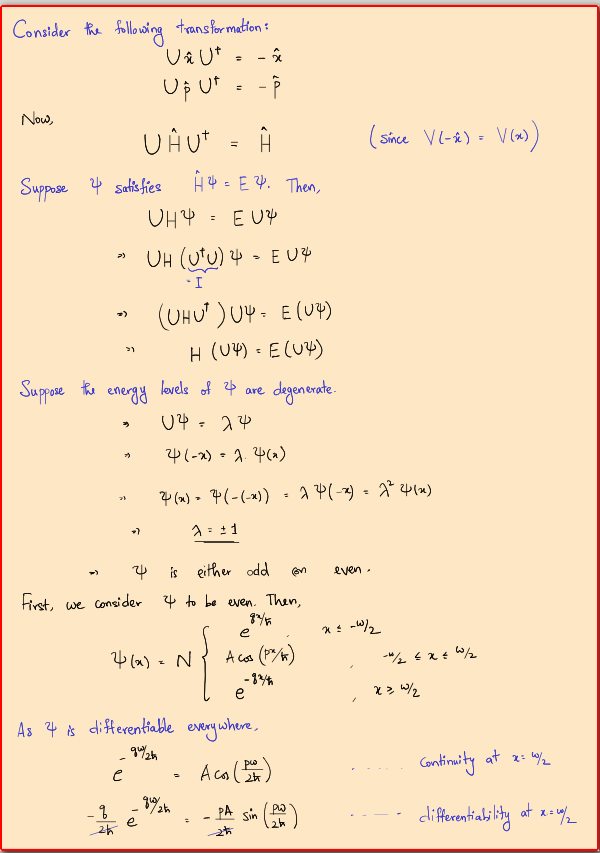 Consider the following transformation:
U x̂ U† = - x̂
U p̂ U† = - p̂
Now,
U Ĥ U† = Ĥ (since V(-x̂) = V(x))
Suppose ψ satisfies Ĥψ = Eψ. Then,
UHψ = E Uψ
⇒ UH (U†U) ψ = E Uψ
= I
⇒ (UHU†) Uψ = E (Uψ)
⇒ H (Uψ) = E(Uψ)
Suppose the energy levels of ψ are degenerate.
⇒ Uψ = λψ
⇒ ψ(-x) = λ. ψ(x)
⇒ ψ(x) = ψ(-(-x)) = λ ψ(-x) = λ² ψ(x)
⇒ λ = ±1
⇒ ψ is either odd or even.
First, we consider ψ to be even. Then,
e^{qx/ħ} , x ≤ -w/2
ψ(x) = N { A cos (px/ħ) , -w/2 ≤ x ≤ w/2
e^{-qx/ħ} , x ≥ w/2
As ψ is differentiable everywhere,
e^{-qw/2ħ} = A cos (pw/2ħ) ..... continuity at x = w/2
-q/2ħ e^{-qw/2ħ} = - pA/2ħ sin (pw/2ħ) ..... differentiability at x = w/2